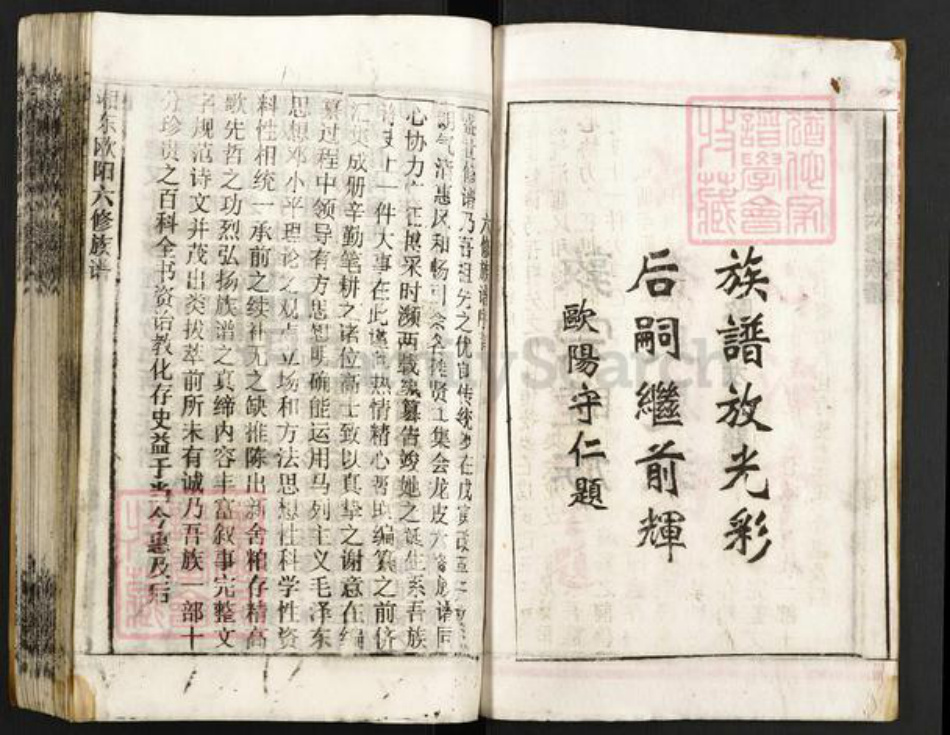 族譜放光彩
后嗣繼前輝
歐陽守仁題
六修族谱序
盛世修谱乃吾祖先之优良传统岁在戊寅
朗气清惠风和畅 贤 集会龙皮 族谱同
心协力广征博采时濒两载编纂告竣她之诞生系吾族
谱史上一件大事在此谨向热情精心资助编纂之前侪
汇集成册辛勤笔耕之诸位高士致以真挚之谢意在编
纂过程中领导有方思想明确能运用马列主义毛泽东
思想邓小平理论之观点立场和方法思想性科学性资
料性相统一承前之续补无之缺推陈出新舍粕存精高
歌先哲之功烈弘扬族谱之真缔内容丰富叙事完整文
字规范诗文并茂出类拔萃前所未有诚乃吾族一部十
分珍贵之百科全书资治教化存史益于当今惠及后
湘东欧阳六修族谱
猶他家譜學會收藏
FamilySearch